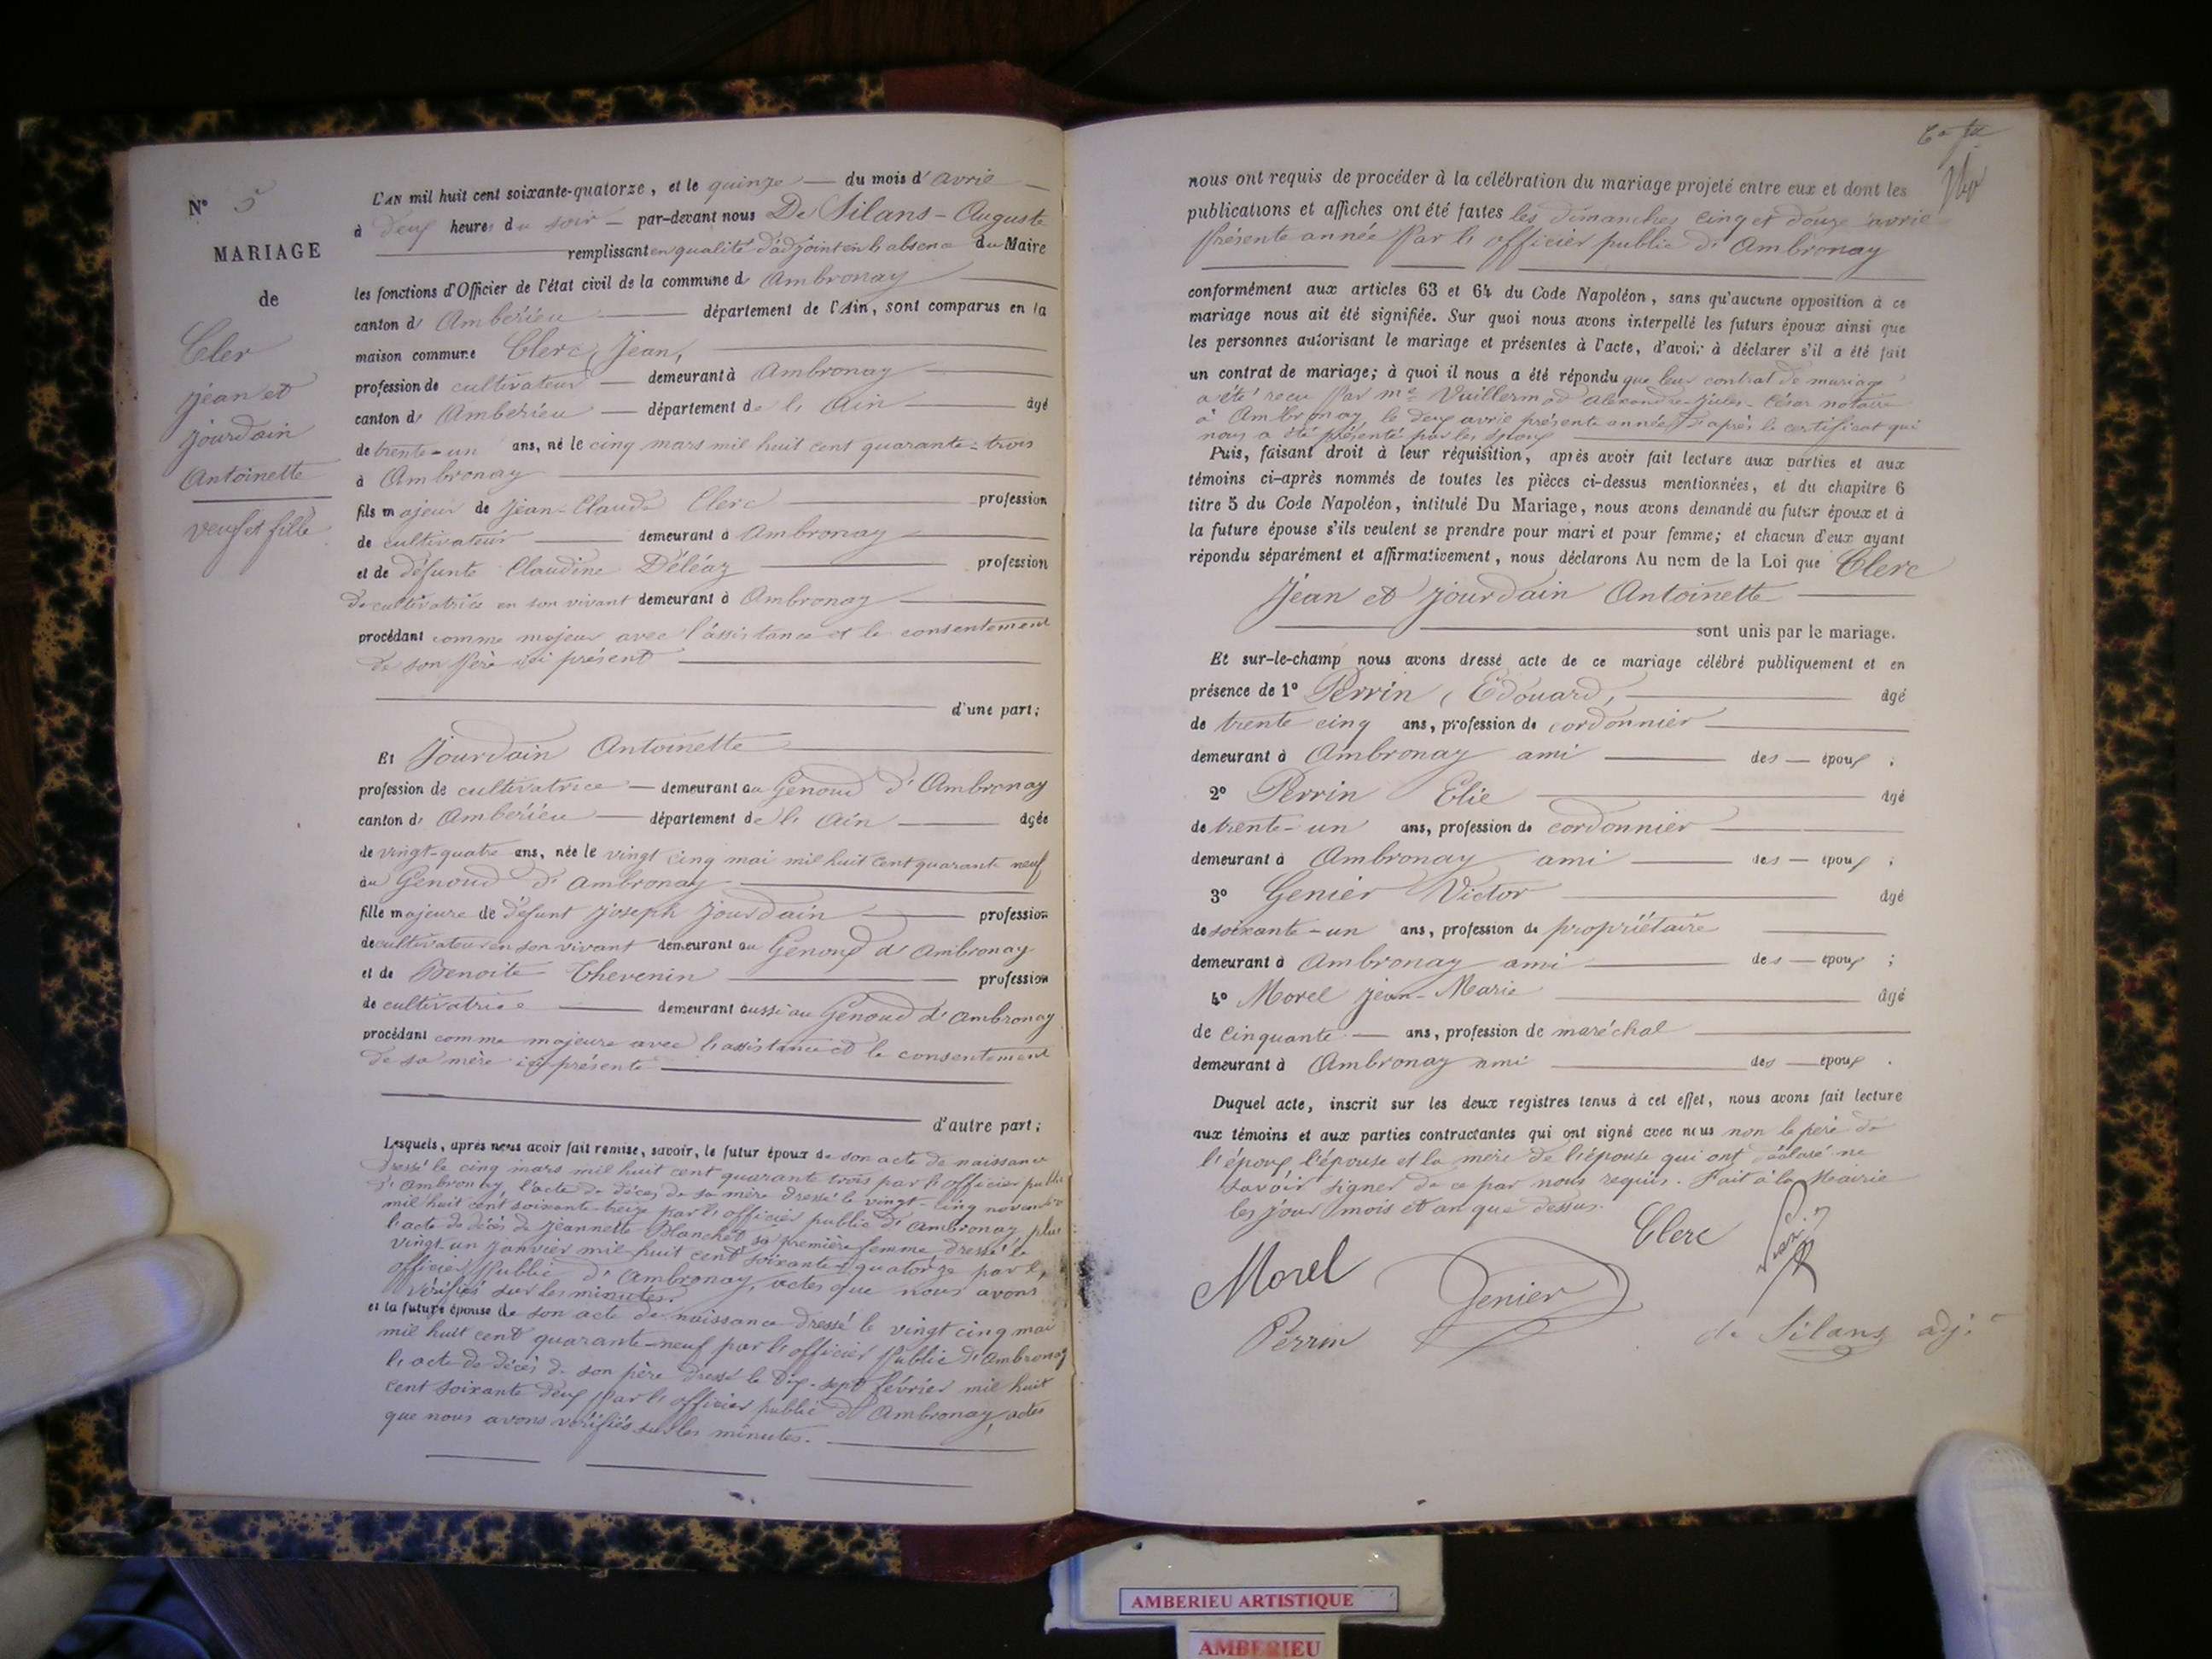 N° 5
MARIAGE
de
Cler
Jean et
Jourdain
Antoinette
veuf et fille
L'AN mil huit cent soixante-quatorze, et le quinze — du mois d'avril
à deux heures du soir — par-devant nous De Silans - Auguste
remplissant en qualité d'adjoint en l'absence du Maire
les fonctions d'Officier de l'état civil de la commune d'Ambronay
canton d'Ambérieu — département de l'Ain, sont comparus en la
maison commune Clerc, Jean,
profession de cultivateur — demeurant à Ambronay
canton d'Ambérieu — département de l'Ain — âgé
de trente-un ans, né le cinq mars mil huit cent quarante-trois
à Ambronay
fils majeur de Jean-Claude Clerc — profession
de cultivateur — demeurant à Ambronay
et de défunte Claudine Déléaz — profession
de cultivatrice en son vivant demeurant à Ambronay
procédant comme majeur avec l'assistance et le consentement
de son père ici présent
d'une part;
Et Jourdain Antoinette
profession de cultivatrice — demeurant au Genoud d'Ambronay
canton d'Ambérieu — département de l'Ain — âgée
de vingt-quatre ans, née le vingt cinq mai mil huit cent quarante neuf
au Genoud d'Ambronay
fille majeure de défunt Joseph Jourdain — profession
de cultivateur en son vivant demeurant au Genoud d'Ambronay
et de Benoite Thevenin — profession
de cultivatrice — demeurant aussi au Genoud d'Ambronay
procédant comme majeure avec l'assistance et le consentement
de sa mère ici présente
d'autre part;
Lesquels, après nous avoir fait remise, savoir, le futur époux de son acte de naissance
dressé le cinq mars mil huit cent quarante trois par l'officier public
d'Ambronay, l'acte de décès de sa mère dressé le vingt-cinq novembre
mil huit cent soixante-treize par l'officier public d'Ambronay, plus
l'acte de décès de Jeannette Blanchet sa première femme, dressé le
vingt-un janvier mil huit cent soixante-quatorze par l'
officier public d'Ambronay, actes que nous avons
vérifiés sur les minutes.
et la future épouse de son acte de naissance dressé le vingt cinq mai
mil huit cent quarante-neuf par l'officier public d'Ambronay
l'acte de décès de son père dressé le dix-sept février mil huit
cent soixante deux par l'officier public d'Ambronay, actes
que nous avons vérifiés sur les minutes.
nous ont requis de procéder à la célébration du mariage projeté entre eux et dont les
publications et affiches ont été faites les dimanches cinq et douze avril
présente année par l'officier public d'Ambronay
conformément aux articles 63 et 64 du Code Napoléon, sans qu'aucune opposition à ce
mariage nous ait été signifiée. Sur quoi nous avons interpellé les futurs époux ainsi que
les personnes autorisant le mariage et présentes à l'acte, d'avoir à déclarer s'il a été fait
un contrat de mariage; à quoi il nous a été répondu que leur contrat de mariage
a été reçu par me Vuillermod Alexandre-Jules-César notaire
à Ambronay le deux avril présente année d'après le certificat qui
nous a été présenté par les époux
Puis, faisant droit à leur réquisition, après avoir fait lecture aux parties et aux
témoins ci-après nommés de toutes les pièces ci-dessus mentionnées, et du chapitre 6
titre 5 du Code Napoléon, intitulé Du Mariage, nous avons demandé au futur époux et à
la future épouse s'ils veulent se prendre pour mari et pour femme; et chacun d'eux ayant
répondu séparément et affirmativement, nous déclarons Au nom de la Loi que Clerc
Jean et Jourdain Antoinette
sont unis par le mariage.
Et sur-le-champ nous avons dressé acte de ce mariage célébré publiquement et en
présence de 1° Perrin, Edouard, — âgé
de trente cinq ans, profession de cordonnier
demeurant à Ambronay ami — des — époux ;
2° Perrin Elie — âgé
de trente-un ans, profession de cordonnier
demeurant à Ambronay ami — des — époux ;
3° Genier Victor — âgé
de soixante-un ans, profession de propriétaire
demeurant à Ambronay ami — des — époux ;
4° Morel Jean-Marie — âgé
de cinquante — ans, profession de maréchal
demeurant à Ambronay ami — des — époux .
Duquel acte, inscrit sur les deux registres tenus à cet effet, nous avons fait lecture
aux témoins et aux parties contractantes qui ont signé avec nous non le père de
l'époux, l'épouse et la mère de l'épouse qui ont déclaré ne
savoir signer de ce par nous requis. Fait à la Mairie
les jour mois et an que dessus.
Clerc
Morel
Genier
Perrin
de Silans adjt
AMBERIEU ARTISTIQUE
AMBERIEU